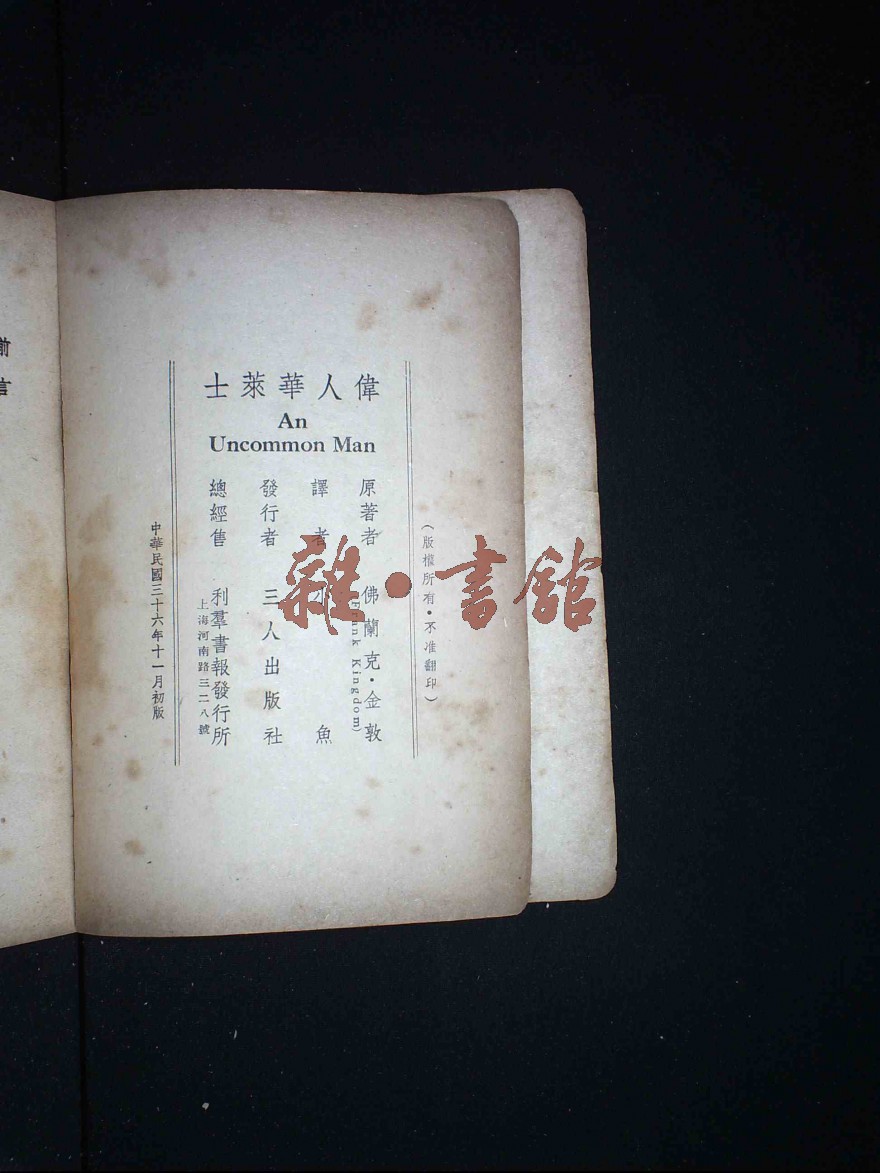 偉人華萊士
An
Uncommon Man
(版權所有・不准翻印)
原著者 佛蘭克・金敦
(Frank Kingdom)
譯者 魚
發行者 三人出版社
總經售 利羣書報發行所
上海河南路三二八號
中華民國三十六年十一月初版
前言
雜・書館